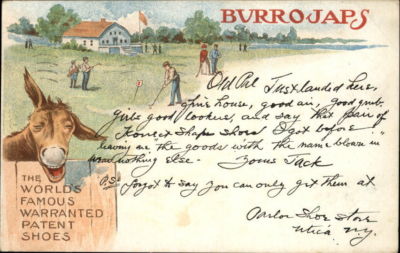 BURROJAPS
Old Pal Just landed here,
fine house, good air, good grub,
Girls good lookers, and say that pair of
Korrect Shape Shoes I got before
leaving are the goods with the name blown in"
wear nothing else - Yours Jack
P.S. forgot to say you can only get them at
Parlor Shoe Store
Utica N.Y.
THE
WORLD'S
FAMOUS
WARRANTED
PATENT
SHOES